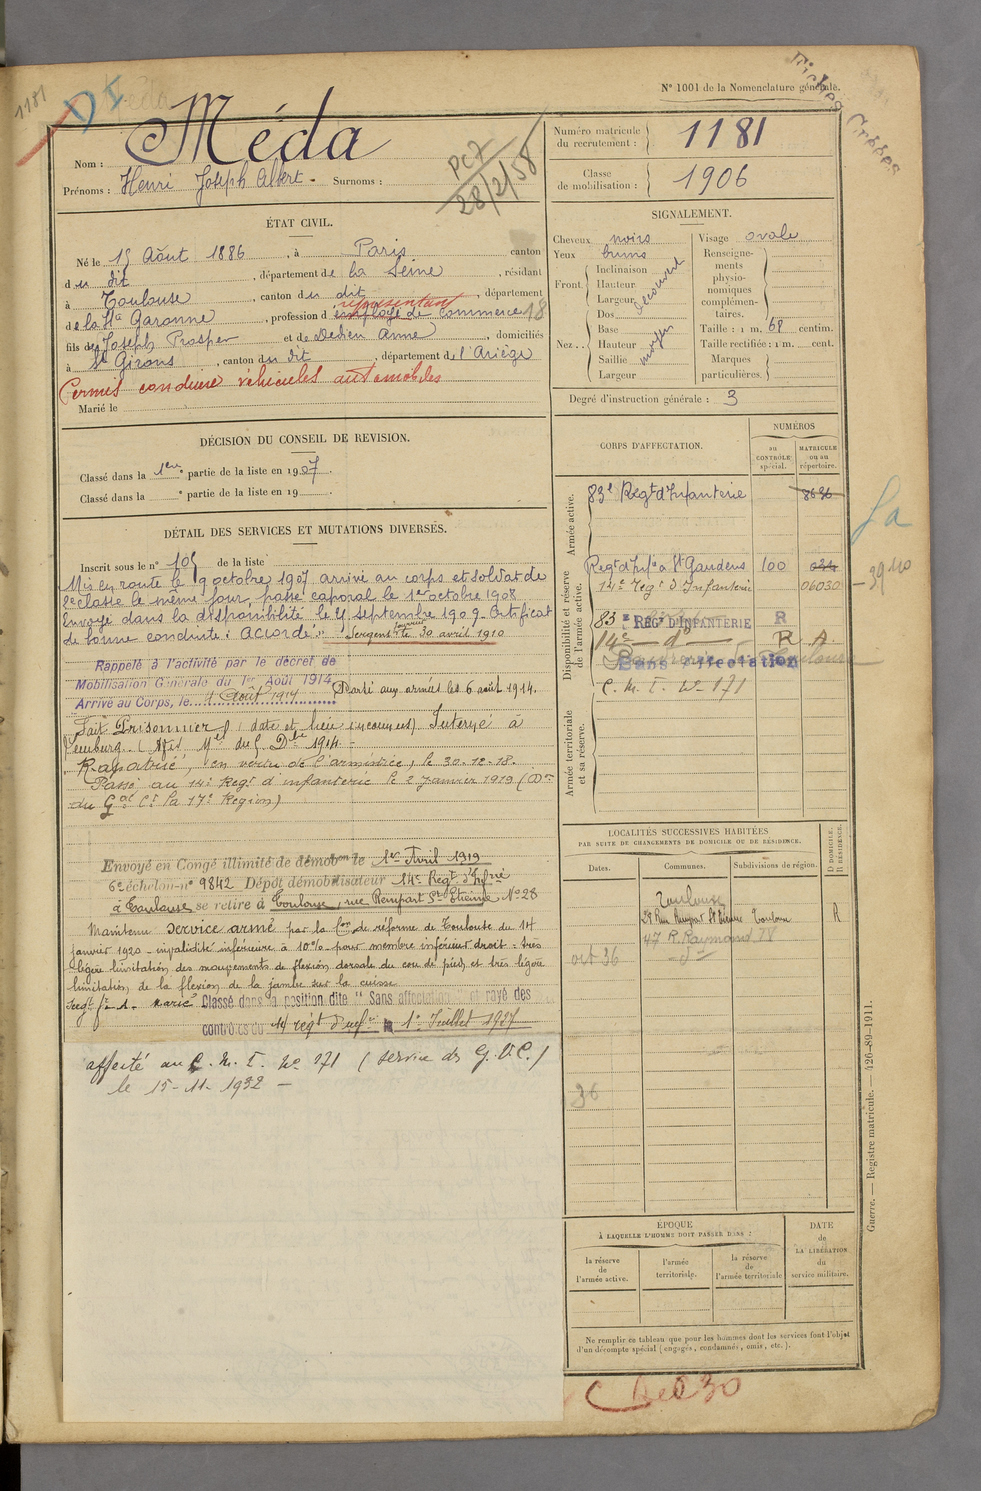 1181
D I
N° 1001 de la Nomenclature générale.
Fiches Croses
Nom : Méda
Prénoms : Henri Joseph Albert - Surnoms :
PC7
28/2/58
Numéro matricule du recrutement : 1181
Classe de mobilisation : 1906
ÉTAT CIVIL.
Né le 15 Août 1886, à Paris canton
du dit, département de la Seine, résidant
à Toulouse, canton du dit, département
représentant
de la Hte Garonne, profession d'employé de commerce 18
fils de Joseph Prosper et de Dedieu Anne, domiciliés
à St Girons, canton du dit, département de l'Ariège
Permis conduire véhicules automobiles
Marié le
SIGNALEMENT.
Cheveux noirs
Yeux bruns
Front : Inclinaison
Hauteur
Largeur
découvert
Nez : Dos
Base
Hauteur
Saillie
Largeur
moyen
Visage ovale
Renseignements physionomiques complémentaires.
Taille : 1 m. 68 centim.
Taille rectifiée : 1 m. cent.
Marques particulières.
Degré d'instruction générale : 3
DÉCISION DU CONSEIL DE REVISION.
Classé dans la 1ere partie de la liste en 1907.
Classé dans la ° partie de la liste en 19 .
DÉTAIL DES SERVICES ET MUTATIONS DIVERSES.
Inscrit sous le n° 105 de la liste
Mis en route le 9 octobre 1907 arrivé au corps et soldat de
2e classe le même jour, passé caporal le 1er octobre 1908
Envoyé dans la disponibilité le 25 septembre 1909. Certificat
de bonne conduite : "Accordé" Sergent fourrier le 30 avril 1910
Rappelé à l'activité par le décret de
Mobilisation Générale du 1er Août 1914
Arrivé au Corps, le 4 Août 1914
Parti aux armées les 6 août 1914.
Fait Prisonnier (date et lieu inconnus) Interné à
Rapatrié, en vertu de l'armistice, le 30-12-18.
Passé au 14e Regt d'infanterie le 2 Janvier 1919 (Don
du Gal Ct la 17e Région)
Envoyé en Congé illimité de démobon le 1er Avril 1919
6e échelon - n° 9842 Dépôt démobilisateur 14e Regt d'Infrie
à Toulouse se retire à Toulouse, rue Rempart St Etienne N° 28
Maintenu service armé par la Con de réforme de Toulouse du 14
janvier 1920 - invalidité inférieure à 10% pour membre inférieur droit = très
légère limitation des mouvements de flexion dorsale du cou de pied et très légère
limitation de la flexion de la jambe sur la cuisse
Classé dans la position dite "Sans affectation" et rayé des
contrôles du 14 régt d'infie le 1er Juillet 1927
affecté au C. M. I. No 171 (service des G. V. C.)
le 15-11-1932 -
CORPS D'AFFECTATION.
NUMÉROS
au CONTRÔLE spécial.
MATRICULE ou au répertoire.
Armée active.
83e Regt d'Infanterie 8686
Disponibilité et réserve de l'armée active.
Regt d'Infie à St Gaudens 100
14e Regt d'Infanterie 06030
83e REGt D'INFANTERIE R
14e - do - R. A.
Sans affectation
C. M. I. No 171
Armée territoriale et sa réserve.
LOCALITÉS SUCCESSIVES HABITÉES
PAR SUITE DE CHANGEMENTS DE DOMICILE OU DE RÉSIDENCE.
Dates. Communes. Subdivisions de région. D DOMICILE. R RÉSIDENCE.
Toulouse
28 Rue Rempart St Etienne Toulouse R
oct 36 47 R. Raymond IV
36
ÉPOQUE
À LAQUELLE L'HOMME DOIT PASSER DANS :
la réserve de l'armée active.
l'armée territoriale.
la réserve de l'armée territoriale
DATE de LA LIBÉRATION du service militaire.
Ne remplir ce tableau que pour les hommes dont les services font l'objet
d'un décompte spécial (engagés, condamnés, omis, etc.).
Guerre. — Registre matricule. — 426-89-1911.